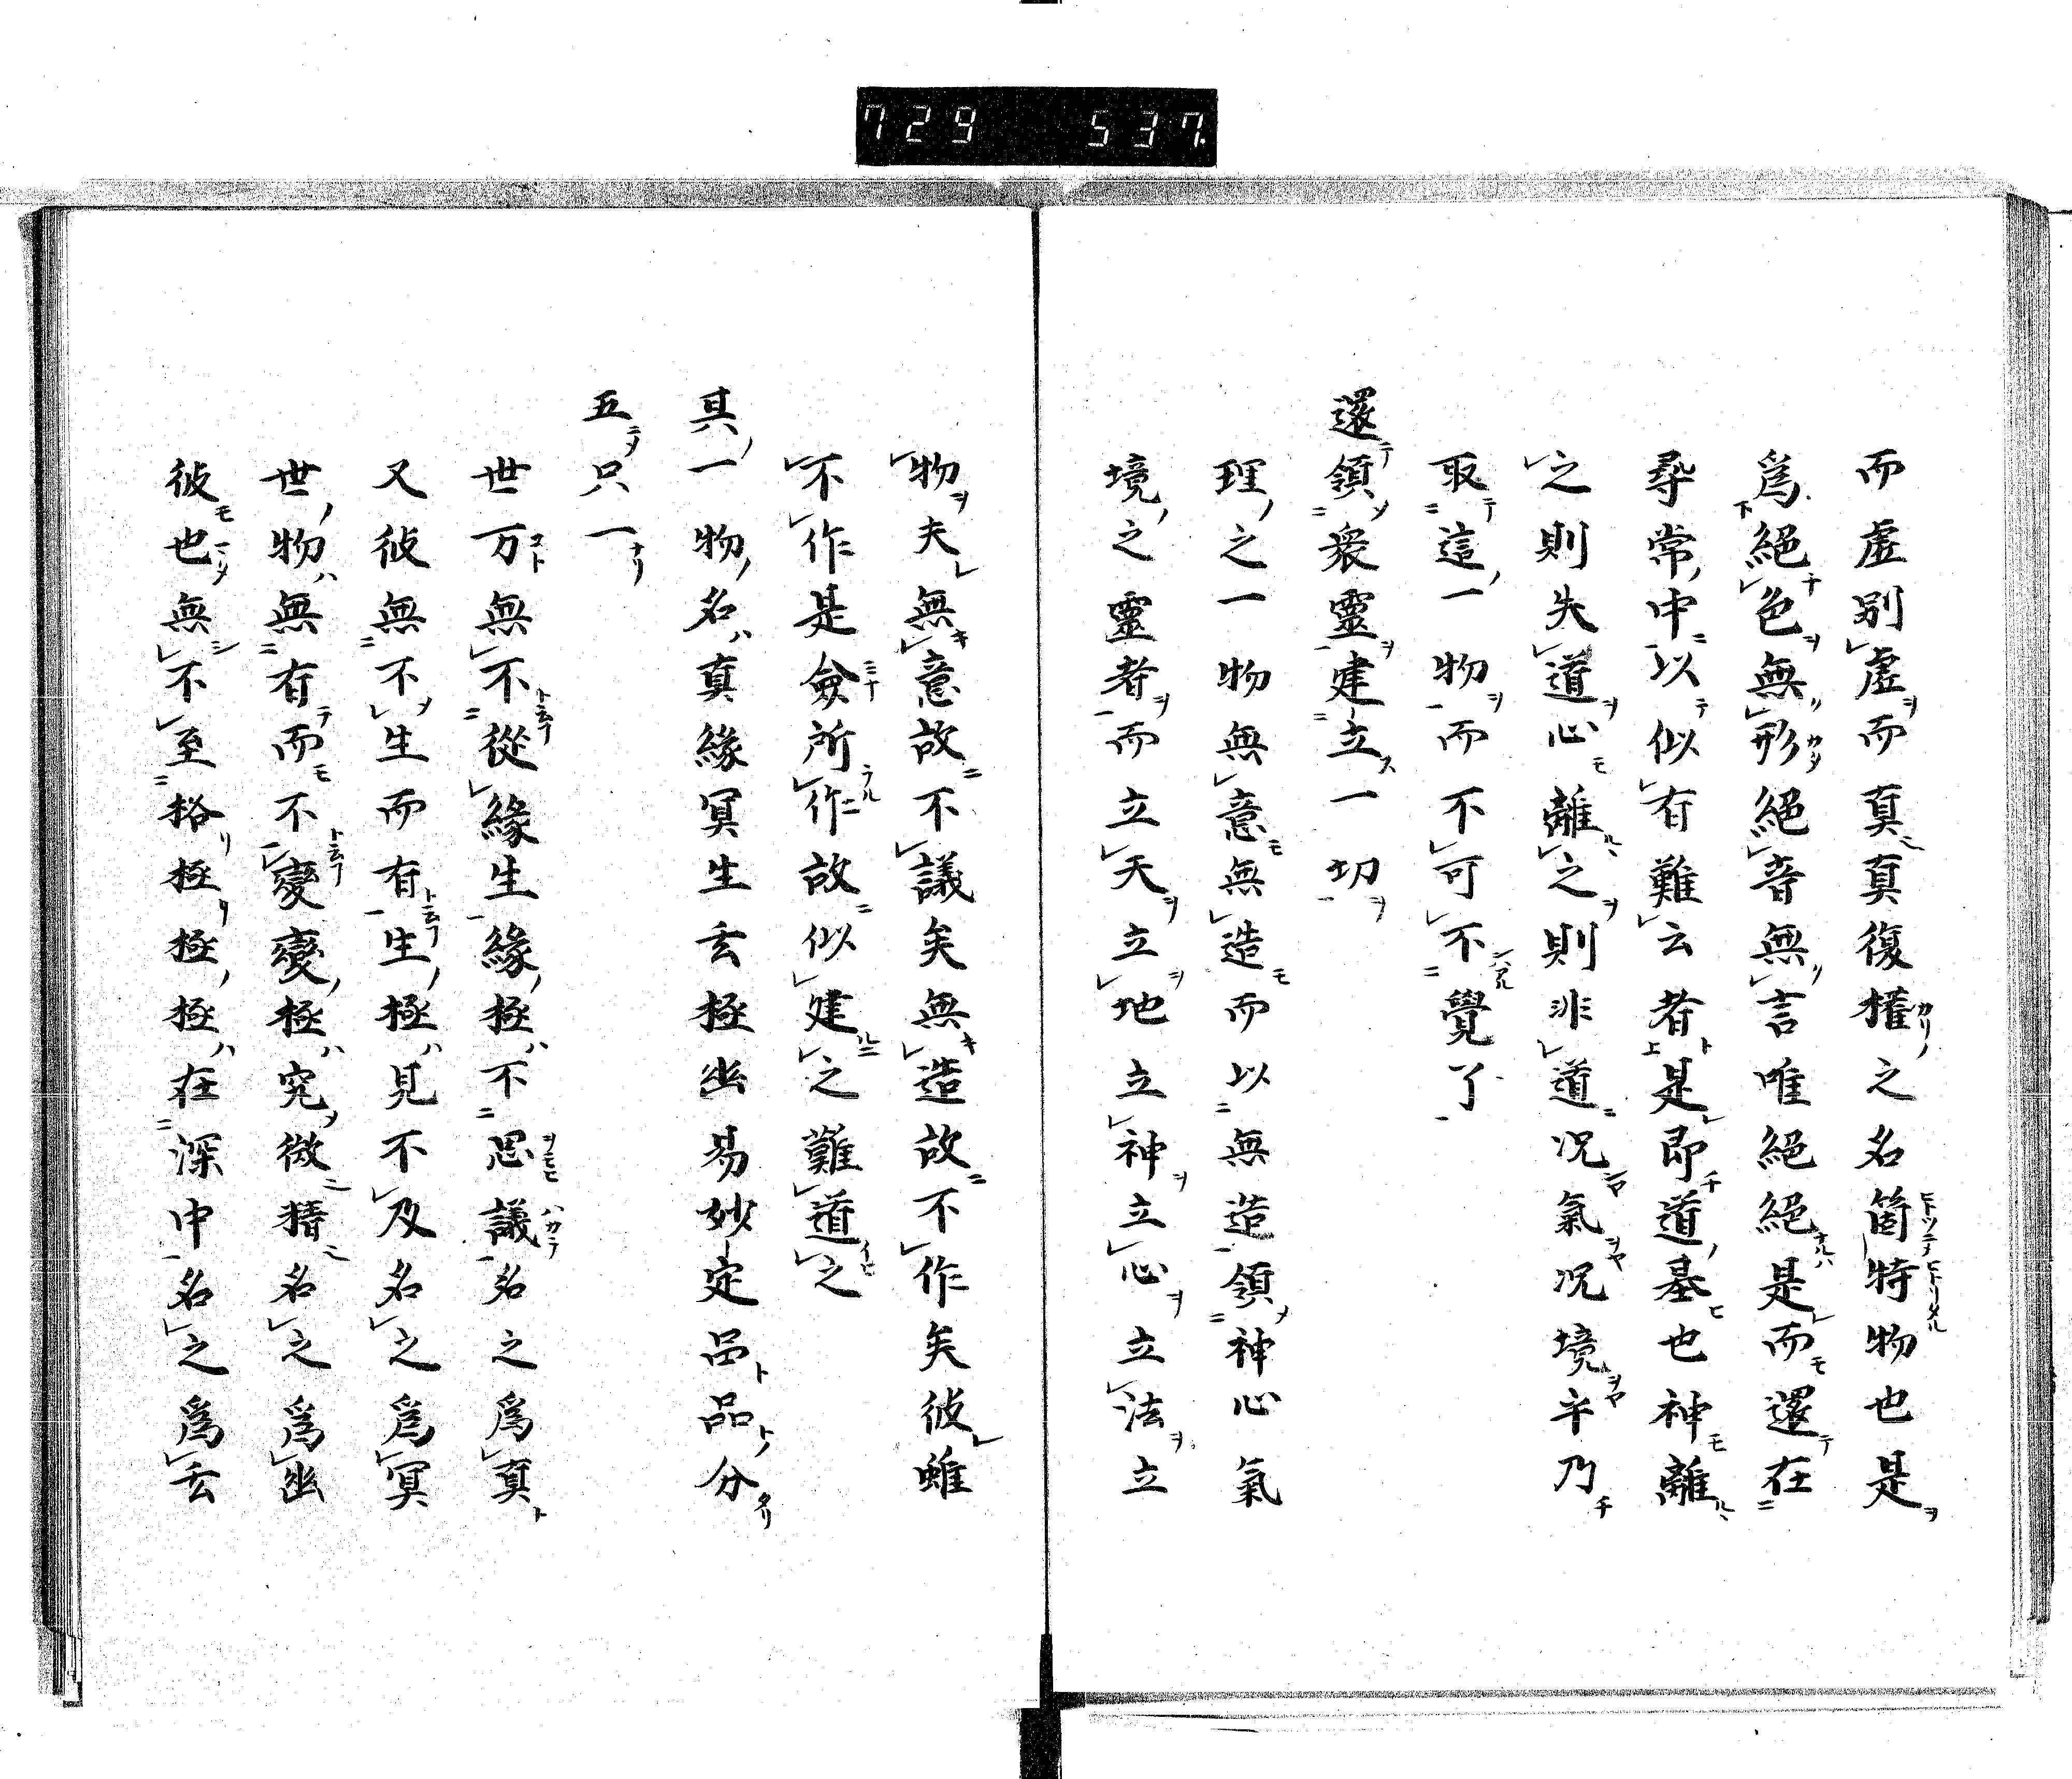 729 537
而虛別虛而真真復權之名箇特物也是
為絕色無形絕音無言唯絕絕是而還在
尋常中以似有難云者是即道基也神離
之則失道心離之則非道況氣況境乎乃
取這一物而不可不覺了
還領衆靈建立一切
理之一物無意無造而以無造領神心氣
境之靈者而立天立地立神立心立法立
物夫無意故不議矣無造故不作矣彼雖
不作是僉所作故似建之難道之
其一物名真緣冥生玄極幽易妙定品品分
五只一
世万無不從緣生緣極不思議名之為真
又彼無不生而有生極見不及名之為冥
世物無有而不變變極究微精名之為幽
彼也無不至格極極極在深中名之為玄